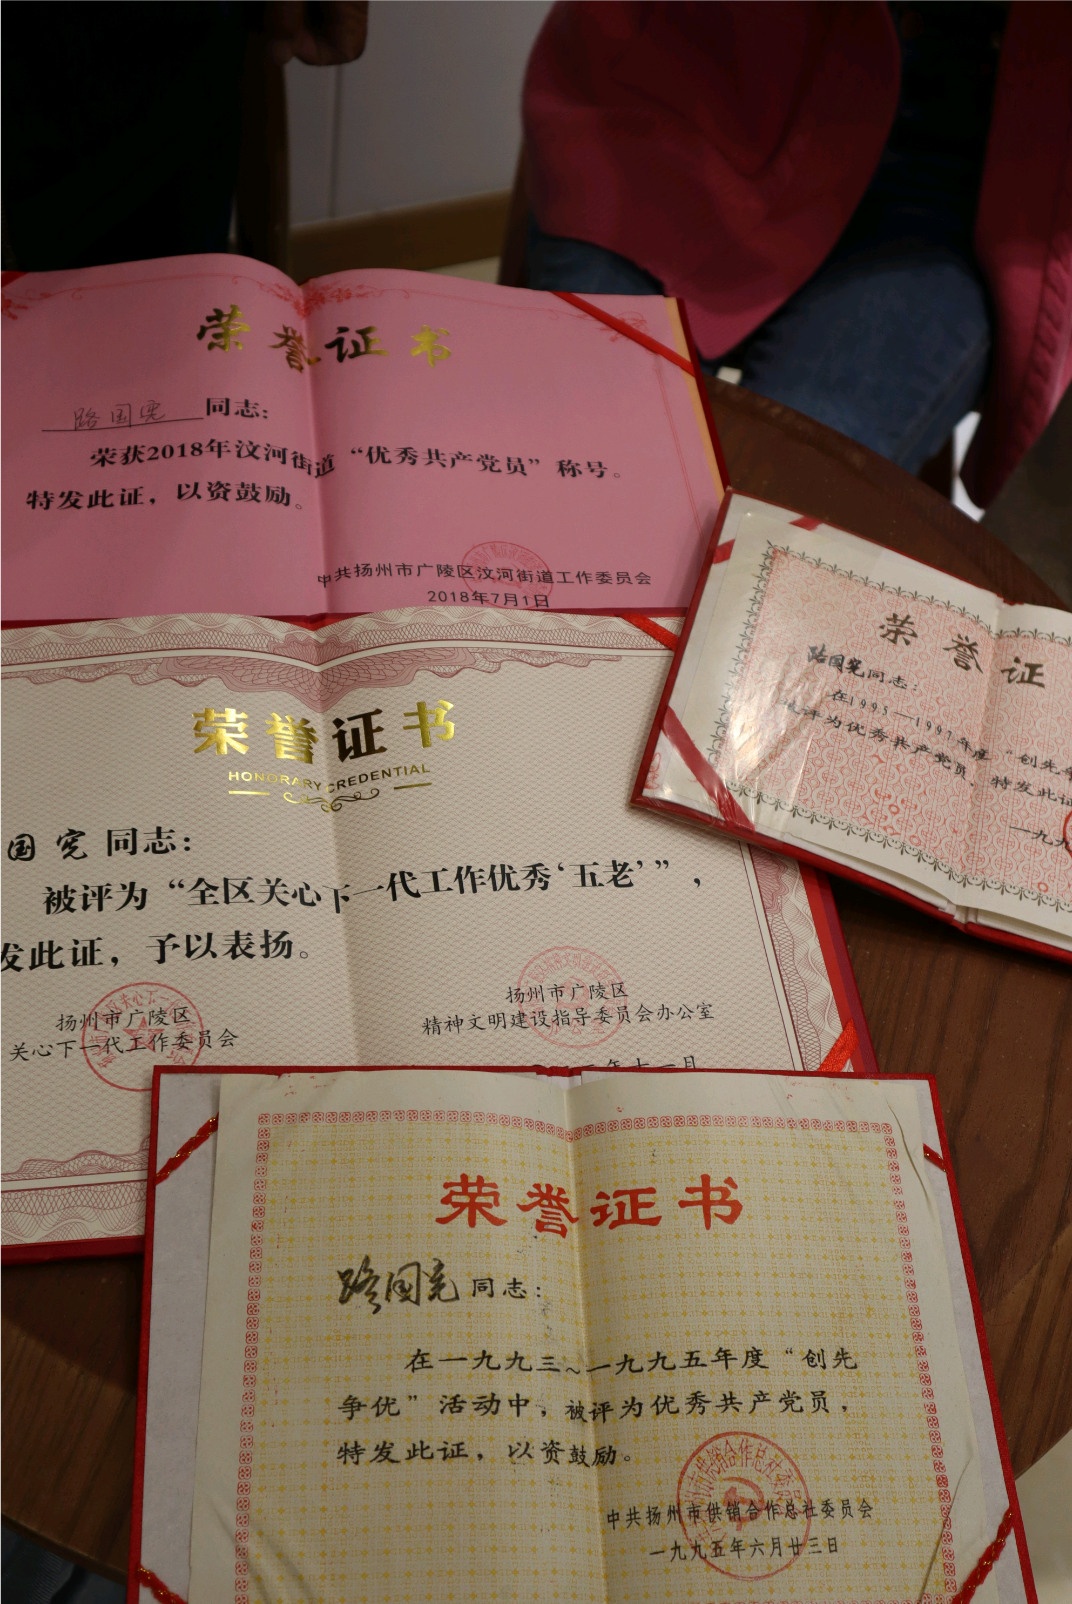 荣誉证书
路国宪 同志：
荣获2018年汶河街道“优秀共产党员”称号。
特发此证，以资鼓励。
中共扬州市广陵区汶河街道工作委员会
2018年7月1日
荣誉证
路国宪同志：
在1995—1997年度“创先争
被评为优秀共产党员，特发此证
一九九
荣誉证书
HONORARY CREDENTIAL
国宪 同志：
被评为“全区关心下一代工作优秀‘五老’”，
发此证，予以表扬。
扬州市广陵区
关心下一代工作委员会
扬州市广陵区
精神文明建设指导委员会办公室
年十一月
荣誉证书
路国宪 同志：
在一九九三~一九九五年度“创先
争优”活动中，被评为优秀共产党员，
特发此证，以资鼓励。
中共扬州市供销合作总社委员会
一九九五年六月廿三日